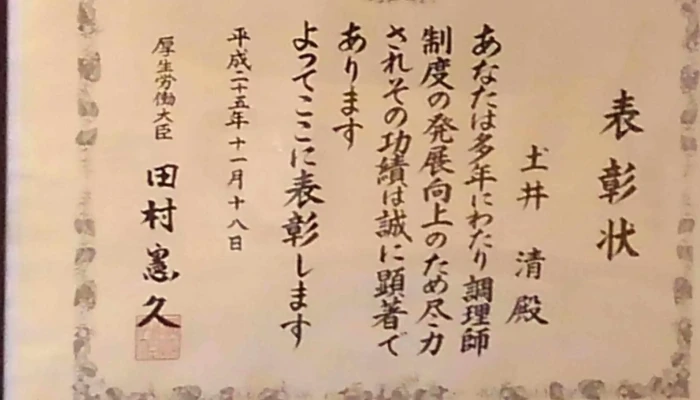 表彰状
土井 清 殿
あなたは多年にわたり調理師
制度の発展向上のため尽力
されその功績は誠に顕著で
あります
よってここに表彰します
平成二十五年十一月十八日
厚生労働大臣 田村憲久